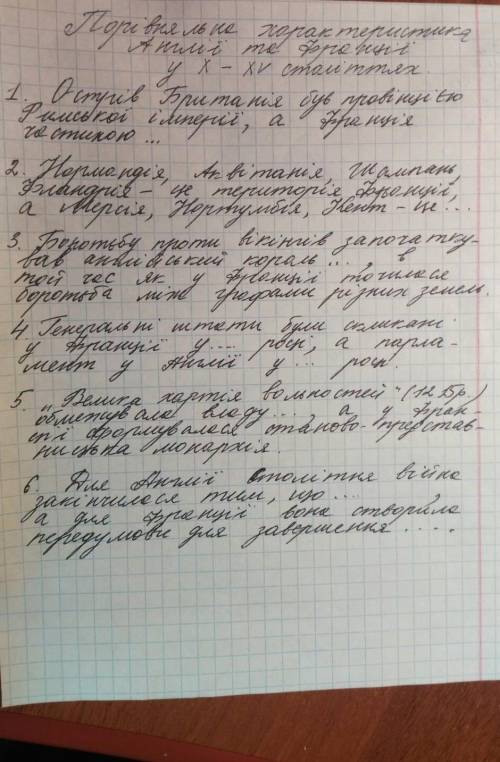 Порівняльна характеристика
Англії та Франції
у X - XV століттях.
1. Острів Британія був провінцією
Римської імперії, а Франція
частиною ...
2. Нормандія, Аквітанія, Шампань,
Фландрія - це територія Франції,
а Мерсія, Нортумбія, Кент - це ...
3. Боротьбу проти вікінгів започатку-
вав англійський король ..., в
той час як у Франції точилася
боротьба між графами різних земель.
4. Генеральні штати були скликані
у Франції у .... році, а парла-
мент у Англії у ... році.
5. „Велика хартія вольностей" (1215р.)
обмежувала владу ..., а у Фран-
ції формувалася станово-представ-
ницька монархія.
6. Для Англії Столітня війна
закінчилася тим, що ....,
а для Франції вона створила
передумови для завершення .....